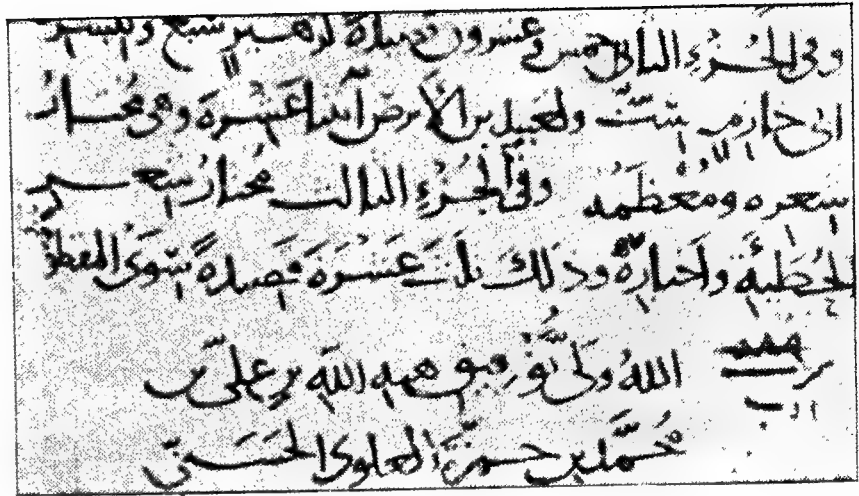 وفي الجُزءِ الثاني خمس وعشرون قصيدةً لزهير سبع ولبشر
ابن أبي خازم ست ولعبيد بن الأبرص اثنتا عَشْرةَ وهي مُختارُ
شعره ومُعْظَمُه وفي الجُزءِ الثالث مُختارُ شعر
الحُطَيْئَةِ وأخبارِهِ وذلك ثلاث عَشْرَةَ قَصيدةً سِوَى المقطو
الله وليّ توفيق هبة الله بن علي بن
مُحَمّد بن حمزة العلوي الحَسَني